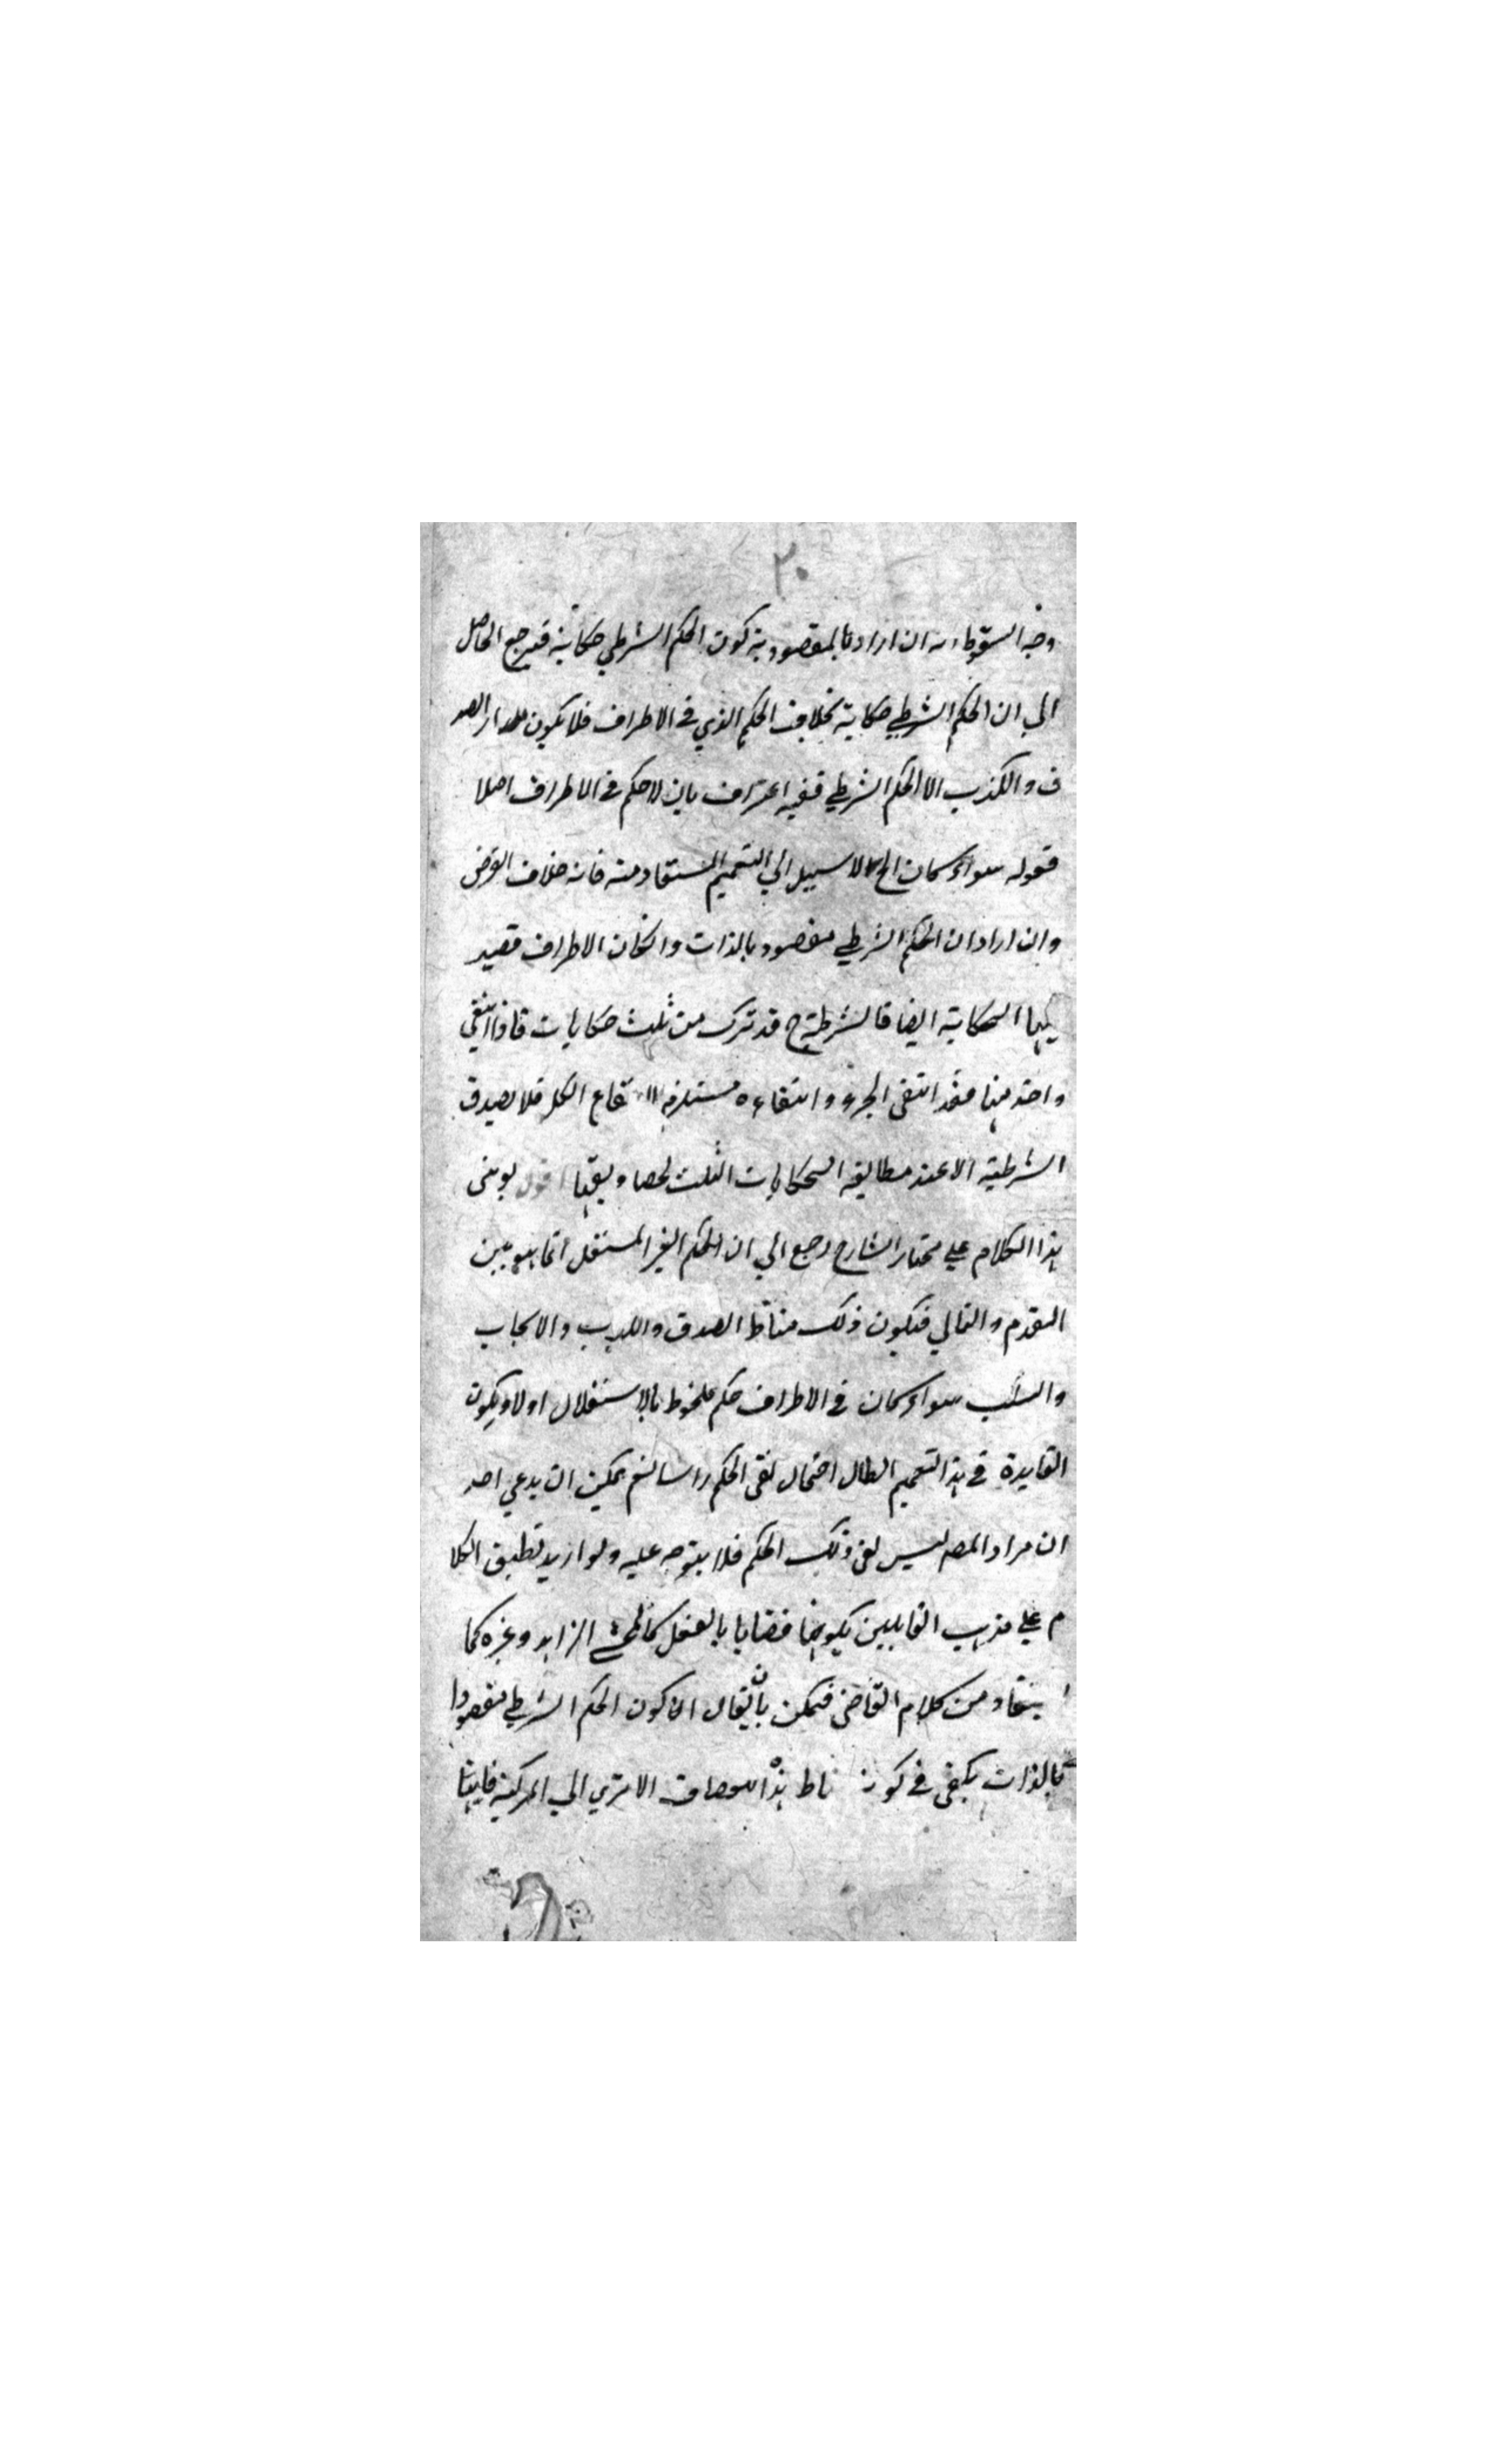 ٢٠
وجه السقوط انه ان اراد بالمقصودية كون الحكم الشرطي حكاية فيرجع الحاصل
الي ان الحكم الشرطي حكاية بخلاف الحكم الذي في الاطراف فلا يكون مدار الصد
ق والكذب الا الحكم الشرطي ففيه اعتراف بان لا حكم في الاطراف اصلا
فقوله سواء كان الخ لا سبيل الي التعميم المستفاد منه فانه خلاف الفرض
وان اراد ان الحكم الشرطي مقصود بالذات وانكان الاطراف قصد
فيها الحكاية ايضا فالشرطية ح قد تركب من ثلث حكايات فاذا انتفي
واحد منها فقد انتفى الجزء وانتفاءه مستلزم لانتفاع الكل فلا يصدق
الشرطية الا عند مطابقة الحكايات الثلث لمصاديقها اقول لو بنى
هذا الكلام علي مختار الشارح رجع الي ان الحكم الغير المستقل انما هو بين
المقدم والتالي فيكون ذلك مناط الصدق والكذب والايجاب
والسلب سواء كان في الاطراف حكم ملحوظ بالاستقلال اولا ويكون
الفايدة في هذا التعميم ابطال احتمال نفى الحكم راسا نعم يمكن ان يدعي احد
ان مراد المصـ ليس نفى ذلك الحكم فلا يتوجه عليه ولو اريد تطبيق الكلا
م علي مذهب القايلين بكونها قضايا بالفعل كالمحشے الزاهد وغيره كما
يستفاد من كلام القاضى فيمكن بان يقال ان كون الحكم الشرطي مقصودا
بالذات يكفى في كونه مناط هذه الاوصاف الا تري الي المركبة فانها